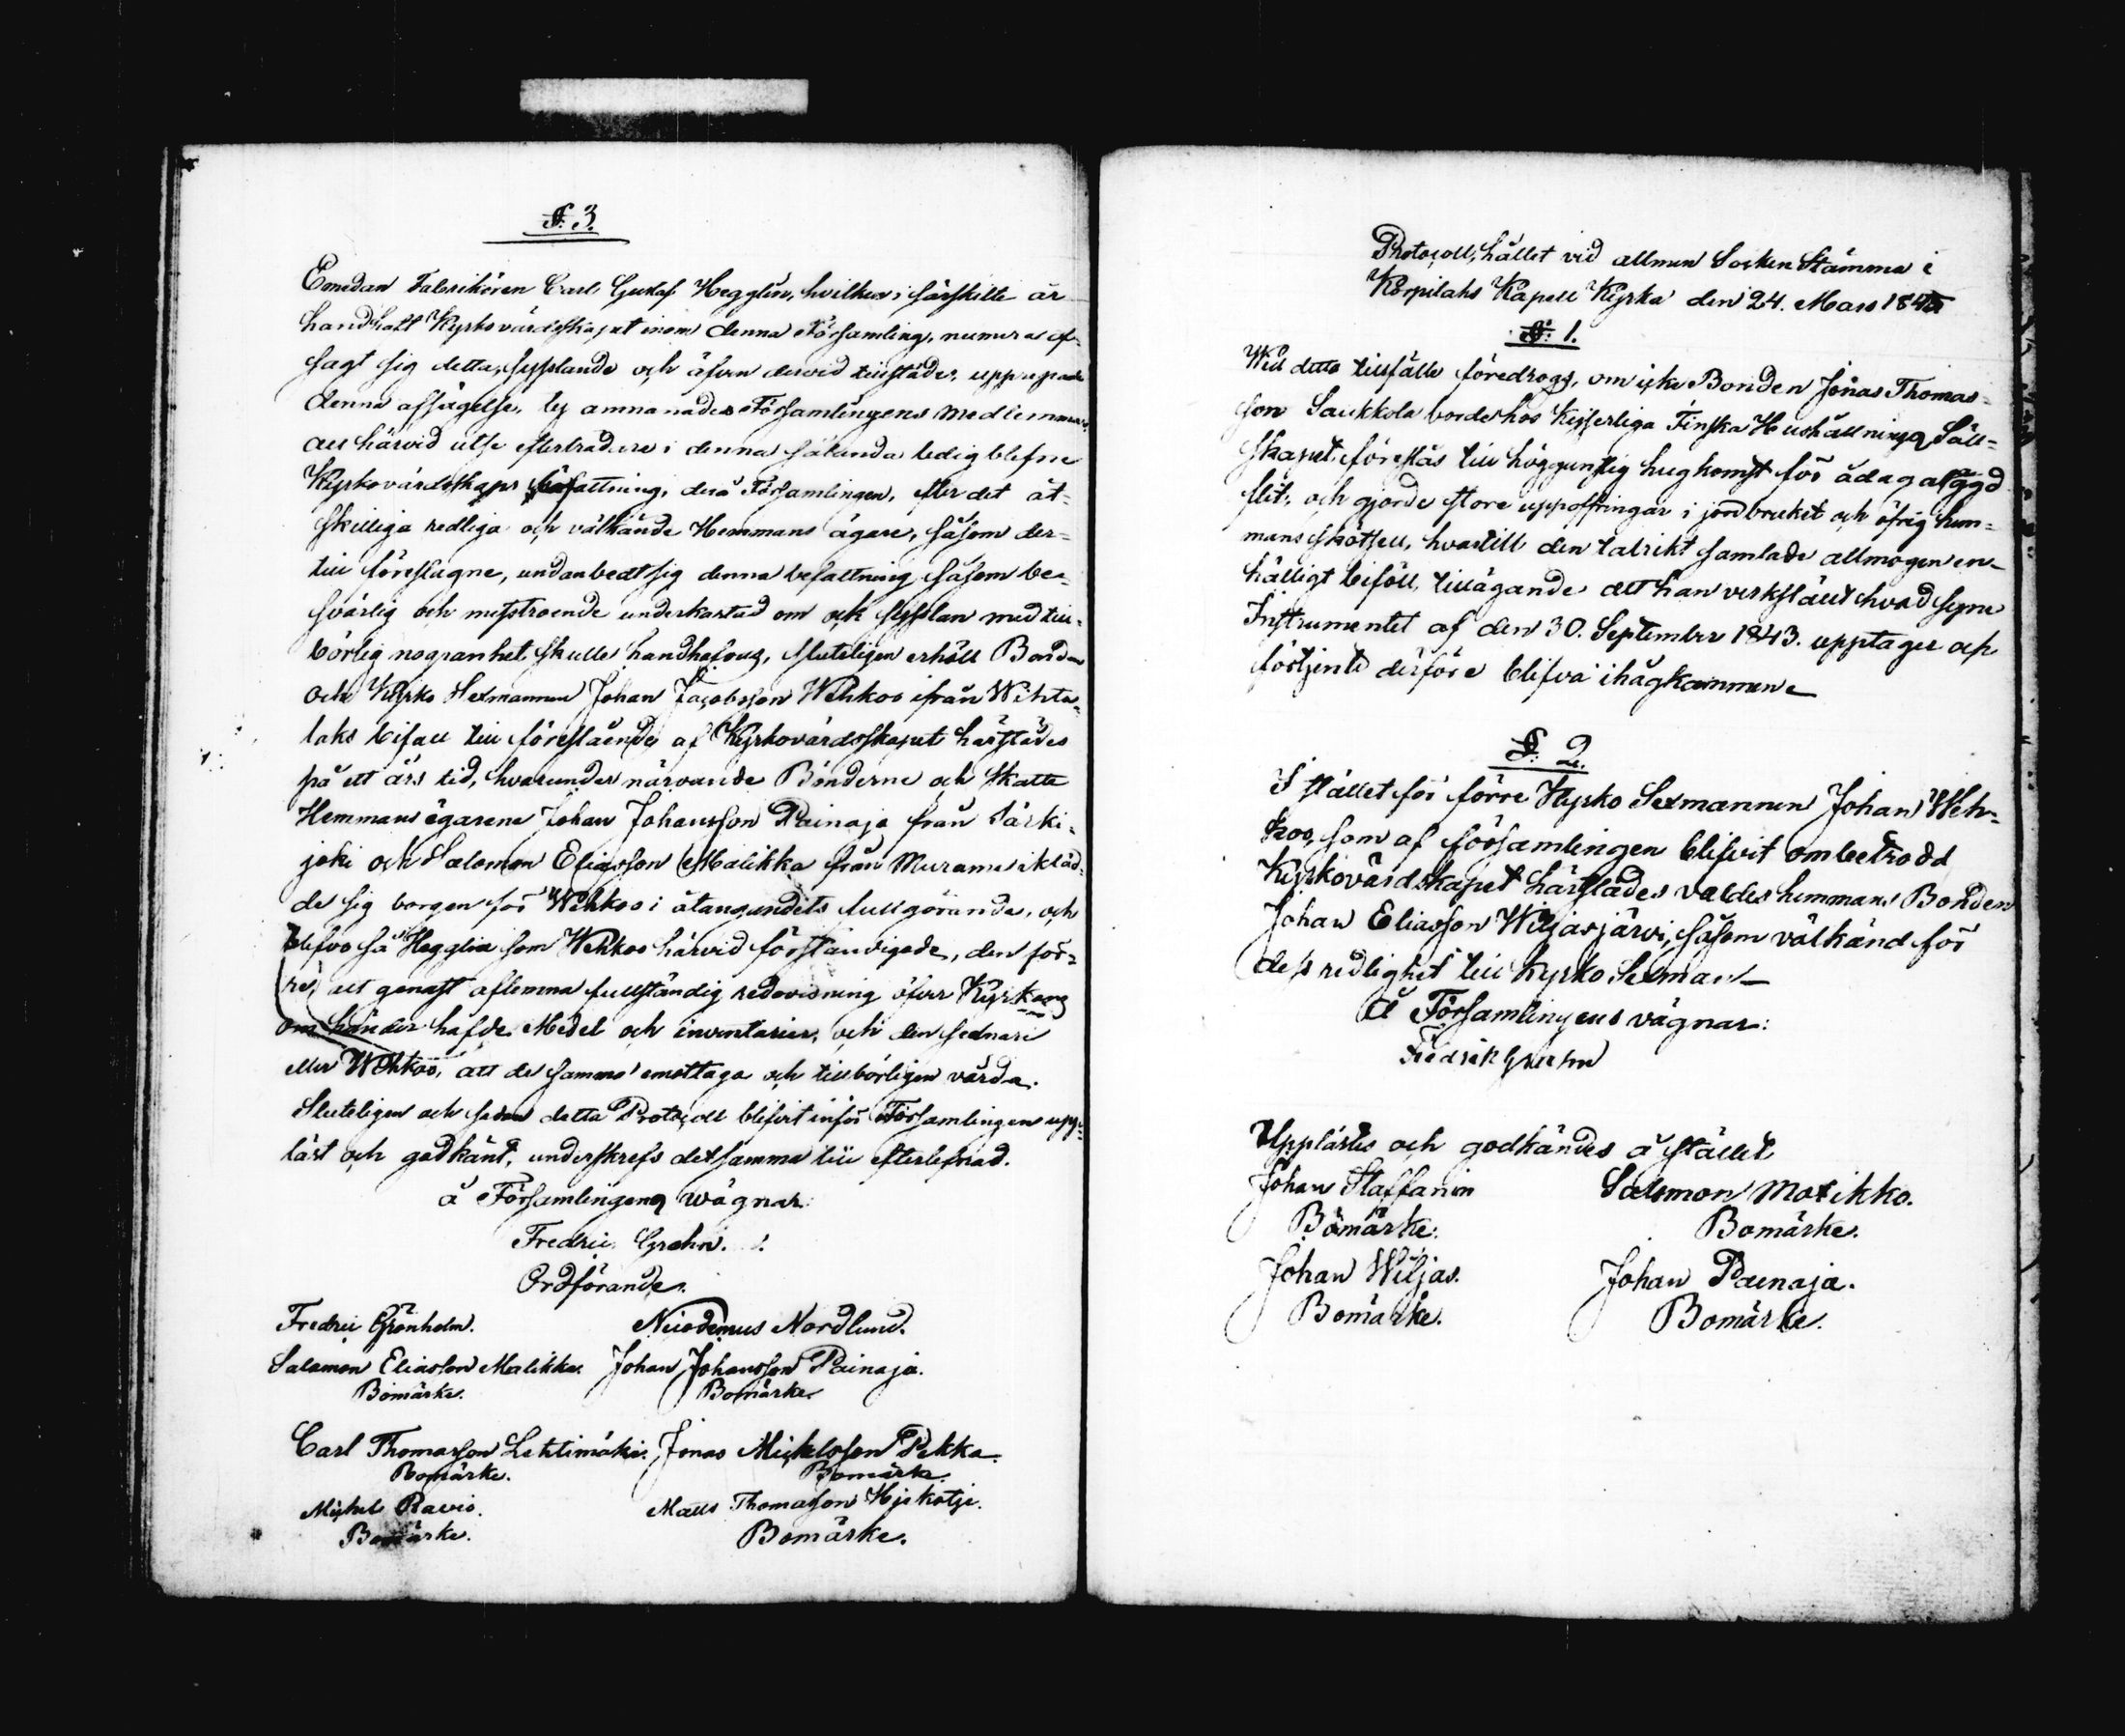 §. 3.
Emedan Fabrikören Carl Gustaf Hegglin, hvilken i särskilte år
handhaft Kyrkovärdskapet inom denna Församling, numera af-
sagt sig detta sysslande och äfven dervid tillstädes, upprepade
denna afsägelse, Församlingens medlemmar
att härvid utse efterträdare i denna sålunda ledig blefne
Kyrkovärdskaps befattning, derå Församlingen, efter det åt-
skilliga redliga och välkände Hemmans ägare, såsom der-
till föreslagne, undanbedt sig denna befattning såsom be-
svärlig och misstroende underkastad om ock sysslan med till-
börlig nogranhet skulle handhafvas, sluteligen erhöll Bonden
och Kyrko Sexmannen Johan Jacobsson Wehkoo ifrån Wehta-
laks bifall till föreslående af Kyrkovärdsskapet härstädes
på ett års tid, hvarunder närvarande Bönderne och skatte
Hemmans ägarene Johan Johansson Painaja från Särki-
joki och Salomon Eliasson Malikka från Murame ikläd-
de sig borgen för Wehkoo i åtagandets fullgörande, och
blefvo så Hegglin som Wehkoo härvid förständigade, den för-
re, att genast aflemna fullständig redovisning öfver Kyrkans
om händer hafde Medel och inventarier, och den sednare
eller Wehkoo, att de samma emottaga och tillbörligen vårda.
Sluteligen och sedan detta Protocoll blifvit inför Församlingen upp-
läst och godkänt, underskrefs detsamma till efterlefnad.
å Församlingens wägnar:
Fredric Grohn.
Ordförande.
Fredric Grönholm. Nicodemus Nordlund.
Salomon Eliasson Malikka. Johan Johansson Painaja.
Bomärke. Bomärke.
Carl Thomasson Lehtimäki. Jonas Michelsson Pekka.
Bomärke. Bomärke.
Michel Ravio. Matts Thomasson
Bomärke. Bomärke.
Protocoll, hållet vid allmen Socken Stämma i
Korpilahs Kapell Kyrka den 24. Mars
§. 1.
Wid detta tillfälle föredrogs, om icke Bonden Jonas Thomas-
son Saukkola borde hos Kejserliga Finska Hushållnings Säll-
skapet, föreslås till höggunstig hugkomst för ådagalagd
flit, och gjorde store uppoffringar i jordbruket och öfrig hem-
mans skötsell, hvartill den talrikt samlade allmogen en-
hälligt biföll, tillägande att han verkställt hvad syne
Instrumentet af den 30. September 1843. upptager och
förtjente derföre blifva ihågkommen
§. 2.
I stället för förre Kyrko Sexmannen Johan Weh-
koo, som af församlingen blifvit ombetrodd
Kyrkovärdskapet härstädes valdes hemmans Bonden
Johan Eliasson Wiljasjärvi, såsom välkänd för
dess redlighet till Kyrko Sexman
å Församlingens vägnar:
Fredrik Grohn
Upplästes och godkändes å stället
Johan Staffanin Salomon Malikko.
Bomärke. Bomärke.
Johan Wiljas. Johan Painaja.
Bomärke. Bomärke.